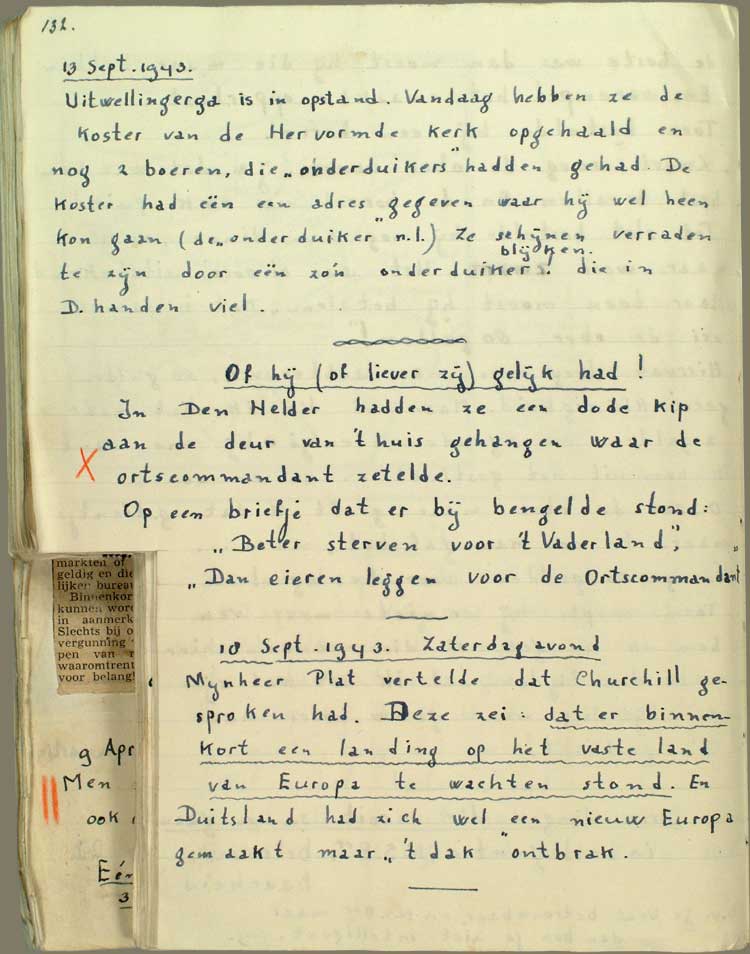 132.
13 Sept. 1943.
Uitwellingerga is in opstand. Vandaag hebben ze de
Koster van de Hervormde Kerk opgehaald en
nog 2 boeren, die „onderduikers" hadden gehad. De
Koster had eën een adres gegeven waar hij wel heen
Kon gaan (de „onderduiker" n.l.) Ze schijnen verraden
blijken.
te zijn door eën zo'n onderduikers! die in
D. handen viel.
Of hij (of liever zij) gelijk had!
In Den Helder hadden ze een dode Kip
X aan de deur van 't huis gehangen waar de
ortscommandant zetelde.
Op een briefje dat er bij bengelde stond:
„Beter sterven voor 't Vaderland",
„Dan eieren leggen voor de Ortscommandant"
18 Sept. 1943. Zaterdagavond
Mynheer Plat vertelde dat Churchill ge-
sproken had. Deze zei: dat er binnen-
Kort een landing op het vaste land
van Europa te wachten stond. En
Duitsland had zich wel een nieuw Europa
gemaakt maar „'t dak" ontbrak.
markten of
geldig en die
lijker bureau
Binnenkor
kunnen word
in aanmerk
Slechts bij o
vergunning
pen van
waaromtrent
voor belang
9 Apr
Men
ook
Eén
3